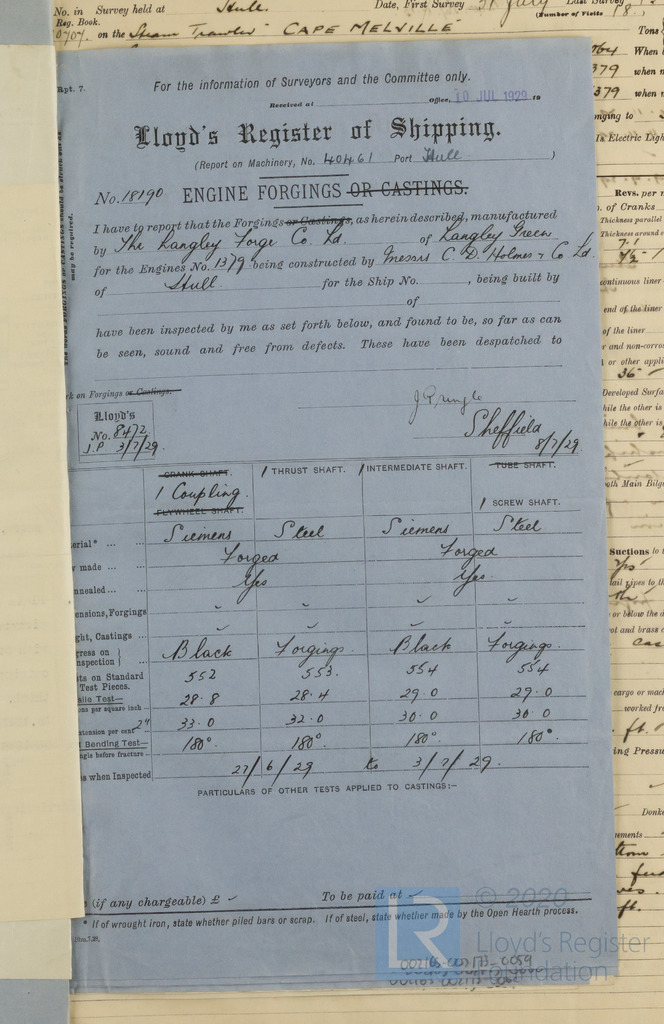 No. in Survey held at Hull. Date, First Survey 31 July Last Survey
Reg. Book. (Number of Visits 18
on the Steam Trawler "CAPE MELVILLE" Tons
When
379 when
379 when
Electric Light
Rpt. 7.
For the information of Surveyors and the Committee only.
Received at Office, 10 JUL 1929 19
Lloyd's Register of Shipping.
(Report on Machinery, No. 40461 Port Hull )
No. 18190 ENGINE FORGINGS OR CASTINGS.
may be required.
I have to report that the Forgings or Castings, as herein described, manufactured
by The Langley Forge Co. Ld. of Langley Green
for the Engines No. 1379 being constructed by Messrs C. D. Holmes & Co Ld.
of Hull for the Ship No. , being built by
of
have been inspected by me as set forth below, and found to be, so far as can
be seen, sound and free from defects. These have been despatched to
k on Forgings or Castings.
J Pringle
Lloyd's
No. 8472
J.P 3/7/29
Sheffield
8/7/29
CRANK SHAFT. 1 THRUST SHAFT. 1 INTERMEDIATE SHAFT. TUBE SHAFT.
1 Coupling.
FLYWHEEL SHAFT. 1 SCREW SHAFT.
erial* ... ... Siemens Steel Siemens Steel
made ... Forged Forged
nealed ... ... Yes Yes.
ensions, Forgings ✓ ✓ ✓ ✓
ght, Castings ... ✓ ✓ ✓ ✓
gress on
nspection } ... Black Forgings. Black Forgings.
ts on Standard
Test Pieces. 552 553. 554 554
ile Test—
ons per square inch 28.8 28.4 29.0 29.0
extension per cent 2" 33.0 32.0 30.0 30.0
t Bending Test—
ngle before fracture 180° 180° 180° 180°
s when Inspected 27/6/29 to 3/7/29.
PARTICULARS OF OTHER TESTS APPLIED TO CASTINGS:—
(if any chargeable) £ ✓ To be paid at ✓
* If of wrought iron, state whether piled bars or scrap. If of steel, state whether made by the Open Hearth process.
10m.7.28.
Revs. per
of Cranks
Thickness parallel
Thickness around
continuous liner
end of the liner
of the liner
r and non-corro
or other appli
36
Developed Surfa
hile the other is
hile the other is
Main Bilge
Suctions to
ail pipes to
or below the d
ot and brass
cargo or mach
worked fro
ft.
ing Pressu
Donke
ements
ft.
LR
© 2020
Lloyd's Register
Foundation
002165-002173-0059